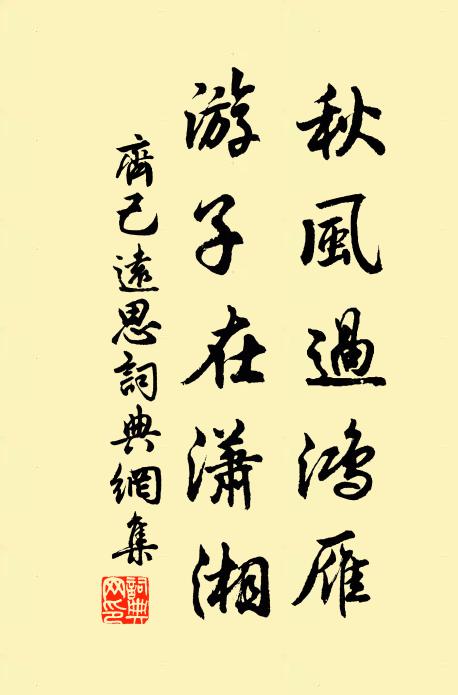 秋風過鴻雁
游子在瀟湘
齊己遠思詞典網集
詞典網印